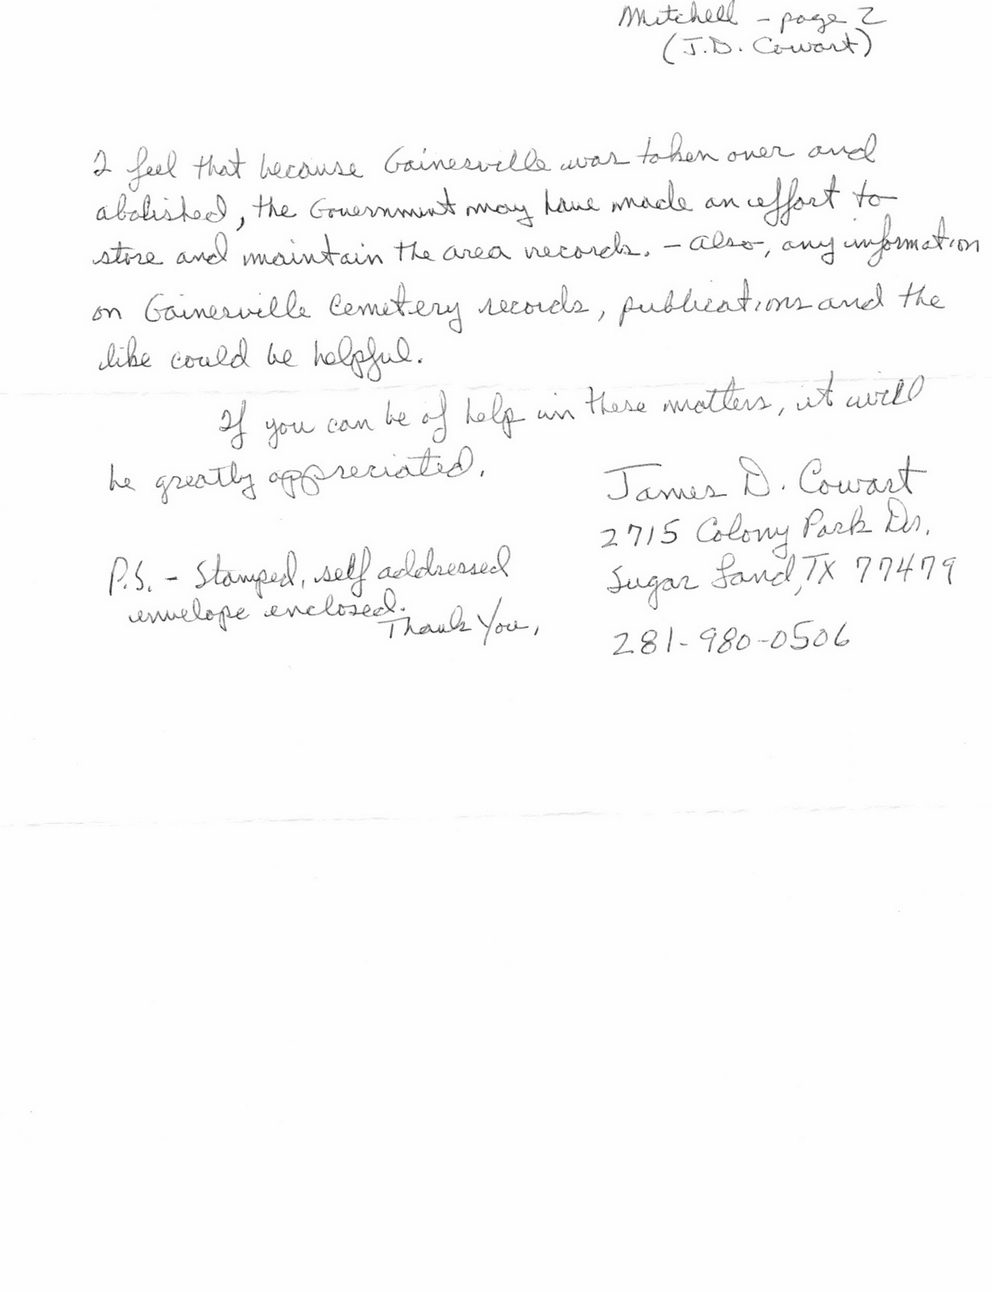 Mitchell - page 2
(J.D. Cowart)
I feel that because Gainesville was taken over and
abolished, the Government may have made an effort to
store and maintain the area records. - also, any information
on Gainesville Cemetery records, publications and the
like could be helpful.
If you can be of help in these matters, it will
be greatly appreciated.
James D. Cowart
2715 Colony Park Dr.
Sugar Land, TX 77479
281-980-0506
P.S. - Stamped, self addressed
envelope enclosed.
Thank You,